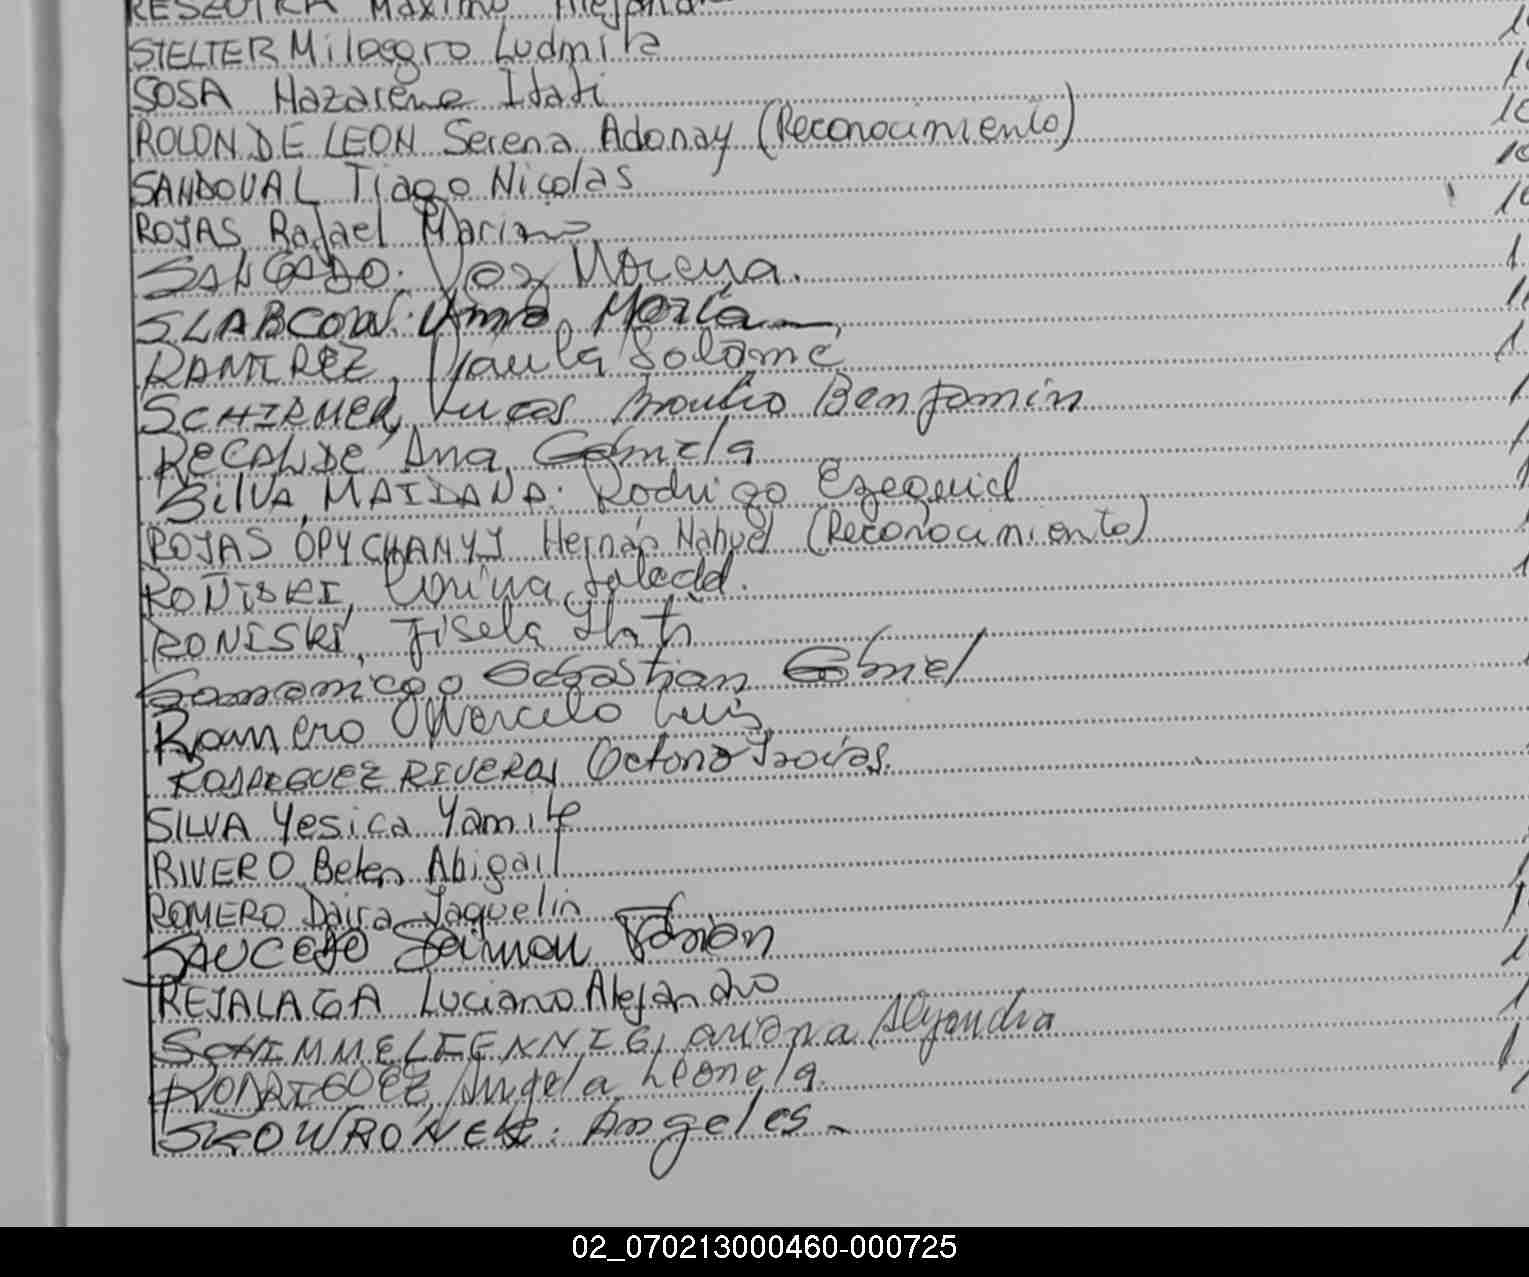 Máximo
STELTER Milagro Ludmila
SOSA Nazarena Itati
ROLON DE LEON Serena Adonay (Reconocimiento)
SANDOVAL Tiago Nicolas
ROJAS Rafael Mariano
SALGADO. Paz Morena.
SLABCOW. Uma María
RAMIREZ, Paula Solomé
SCHIRMER, Lucas Braulio Benjamin
RECALDE Ana Gabriela
SILVA MAIDANA. Rodrigo Ezequiel
ROJAS OPYCHANYJ Hernán Nahuel (Reconocimiento)
ROÑISKI, Corina Soledad.
RONISKI, Jisela Itati
Samaniego Sebastian Gabriel
Romero Marcelo Luis
RODRIGUEZ RIVEROS Octavio Isaías.
SILVA Yesica Yamile
RIVERO Belen Abigail
ROMERO Daira Jaquelin
SAUCEDO Seimon Fabián
REJALAGA Luciano Alejandro
SCHIMMELFENNIG, ariana Alejandra
RODRIGUEZ, Angela Leonela.
SKOWRONEK. Angeles
02_070213000460-000725